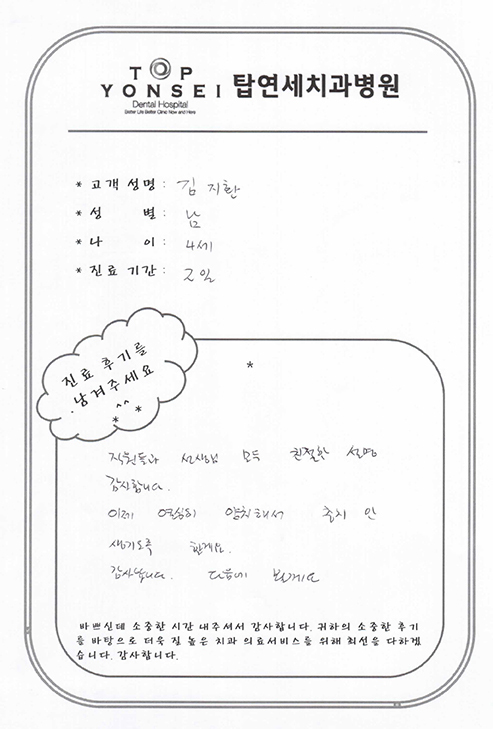 TOP
YONSEI 탑연세치과병원
Dental Hospital
Better Life Better Clinic Now and Here
* 고객 성명 : 김지환
* 성 별 : 남
* 나 이 : 4세
* 진료 기간 : 2일
진료 후기를
남겨주세요
^^
* *
*
직원들과 선생님 모두 친절한 설명
감사합니다.
이제 열심히 양치해서 충치 안
생기도록 할게요.
감사합니다. 다음에 뵐게요
바쁘신데 소중한 시간 내주셔서 감사합니다. 귀하의 소중한 후기
를 바탕으로 더욱 질 높은 치과 의료서비스를 위해 최선을 다하겠
습니다. 감사합니다.